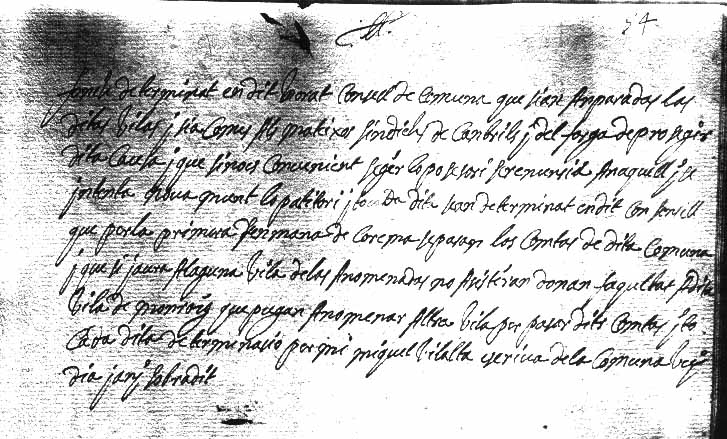 54
fonch determinat en dit honrat Consell de Comuna que sian Amparadas las
ditas Vilas j sia Comes Als matixos sindichs de Cambrils j del forga de prosegir
dita Causa j que sinoes Convenient segir lo posesori serenunsia Anaquell j se
jntenta nova gnent lo patitori j tocada dita sean determinat en dit Consell
que per la primera semmana de Corema sepasan los Comtos de dita Comuna
j que si jaura Alaguna Vila de las Anomenadas no Asistiran donan faqultat Adita
Vila de monroig que pugan Anomenar Altra Vila per pasar dits Comtos j to
Cada dita determinasio per mi miquel Vilalta escriva de la Comuna
dia j anj sobradit